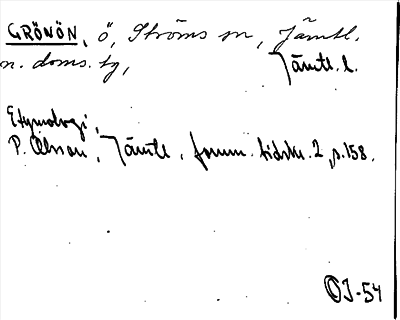 GRÖNÖN, ö, Ströms sn, Jämtl.
n. doms. tg, Jämtl. l.
Etymologi,
P. Olsson, Jämtl. fornm. tidskr. 2, s. 158.
OJ-54